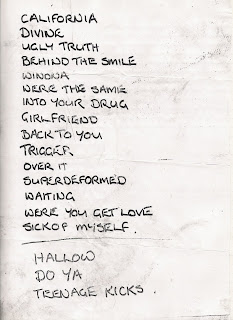 CALIFORNIA
DIVINE
UGLY TRUTH
BEHIND THE SMILE
WINONA
WERE THE SAME
INTO YOUR DRUG
GIRLFRIEND
BACK TO YOU
TRIGGER
OVER IT
SUPERDEFORMED
WAITING
WERE YOU GET LOVE
SICK OF MYSELF.
HALLOW
DO YA
TEENAGE KICKS.